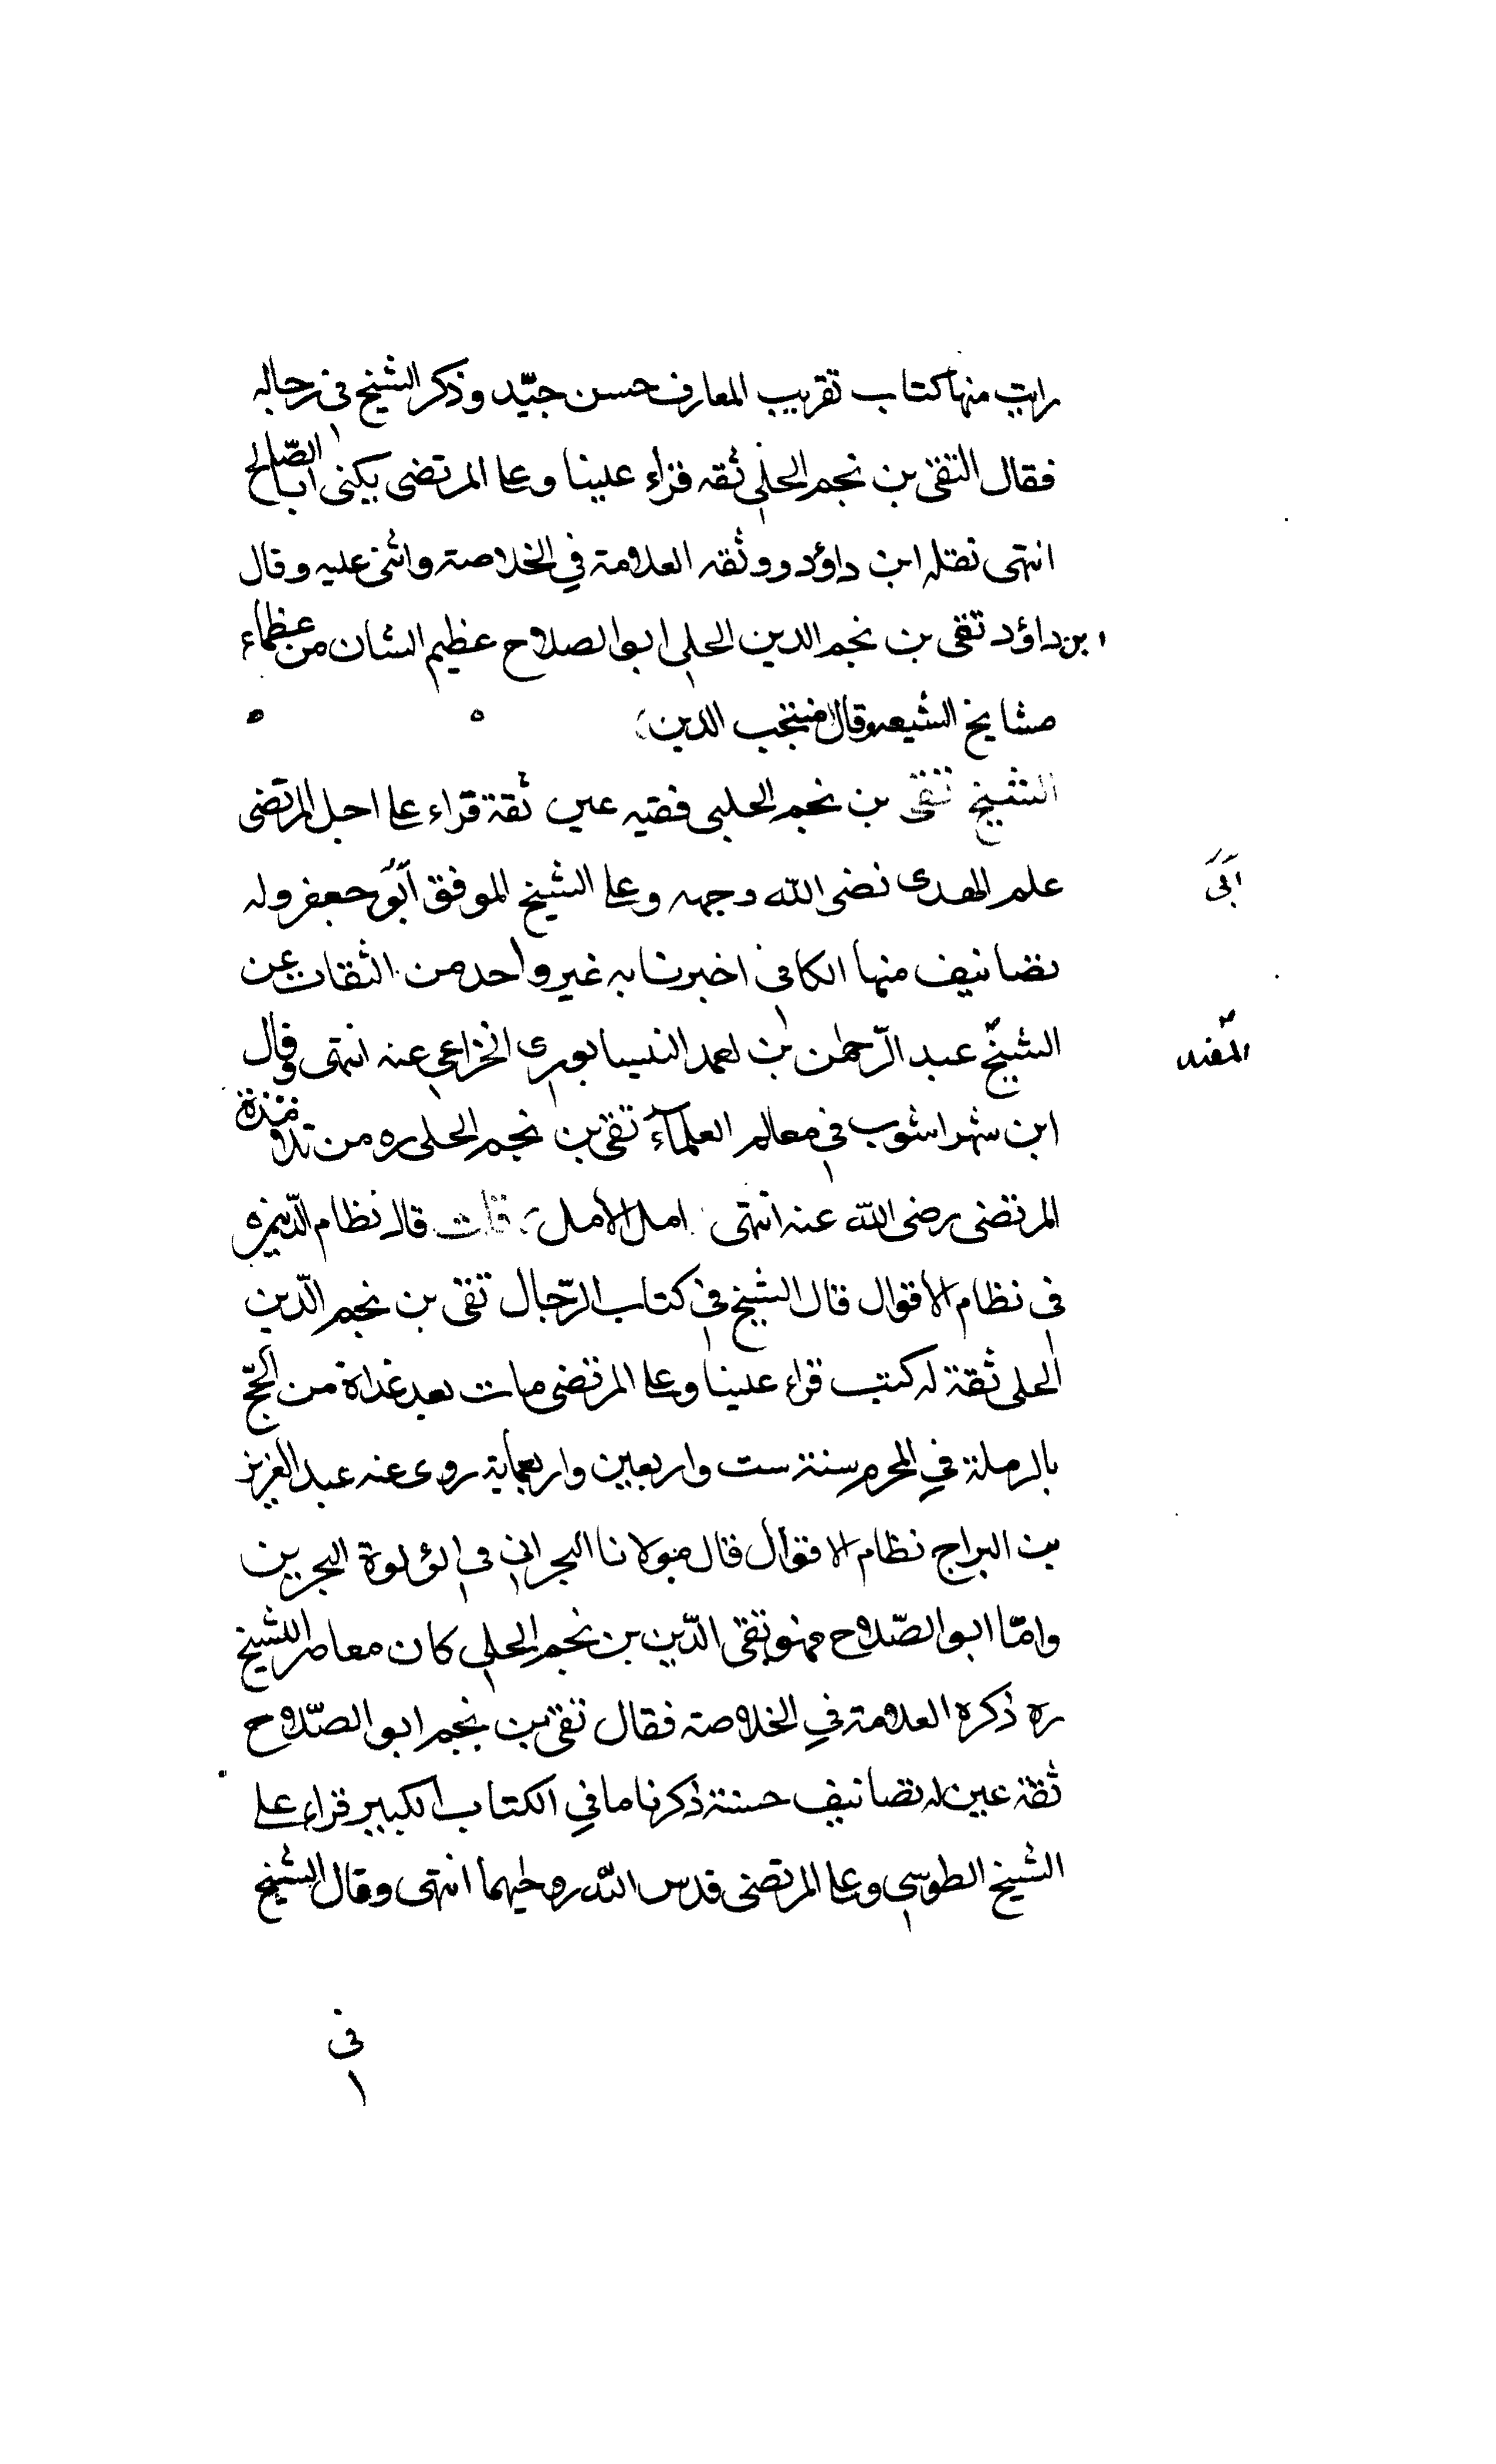 رایت منها کتاب تقریب المعارف حسن جیّد و ذکر الشیخ فی رجاله
فقال التقی بن نجم الحلبی ثقه قراء علینا و علی المرتضی یکنی ابا الصّالح
انتهی نقله ابن داؤد و وثقه العلامة فی الخلاصة و اثنی علیه و قال
ابن داؤد تقی بن نجم الدین الحلبی ابو الصلاح عظیم الشان من عظماء
مشایخ الشیعه و قال منتجب الدین
الشیخ تقی بن نجم الحلبی فقیه عین ثقة قراء علی اجل المرتضی
علم الهدی نضی الله وجهه و علی الشیخ الموفق ابو جعفر و له
ابی
تصانیف منها الکافی اخبرنا به غیر واحد من الثقات عن
الشیخ عبد الرّحمن بن احمد النیسابوری الخزاعی عنه انتهی و قال
المفید
ابن شهراشوب فی معالم العلمآء تقی بن نجم الحلبی ره من تلامذة
المرتضی رضی الله عنه انتهی امل الأمل قلت قال نظام الدّین ره
فی نظام الاقوال قال الشیخ فی کتاب الرّجال تقی بن نجم الدّین
الحلبی ثقة له کتب قراء علینا و علی المرتضی مات بعد غداة من الحجّ
بالرملة فی المحرم سنة ست و اربعین و اربعمایة روی عنه عبد العزیز
بن البراج نظام الاقوال قال مولانا البحرانی فی لؤلوة البحرین
و امّا ابو الصّلاح فهو تقی الدّین بن نجم الحلبی کان معاصر الشیخ
ره ذکره العلامة فی الخلاصة فقال تقی بن نجم ابو الصّلاح
ثقة عین له تصانیف حسنة ذکرناها فی الکتاب الکبیر قراء علی
الشیخ الطوسی و علی المرتضی قدس الله روحیهما انتهی و قال الشیخ
فی